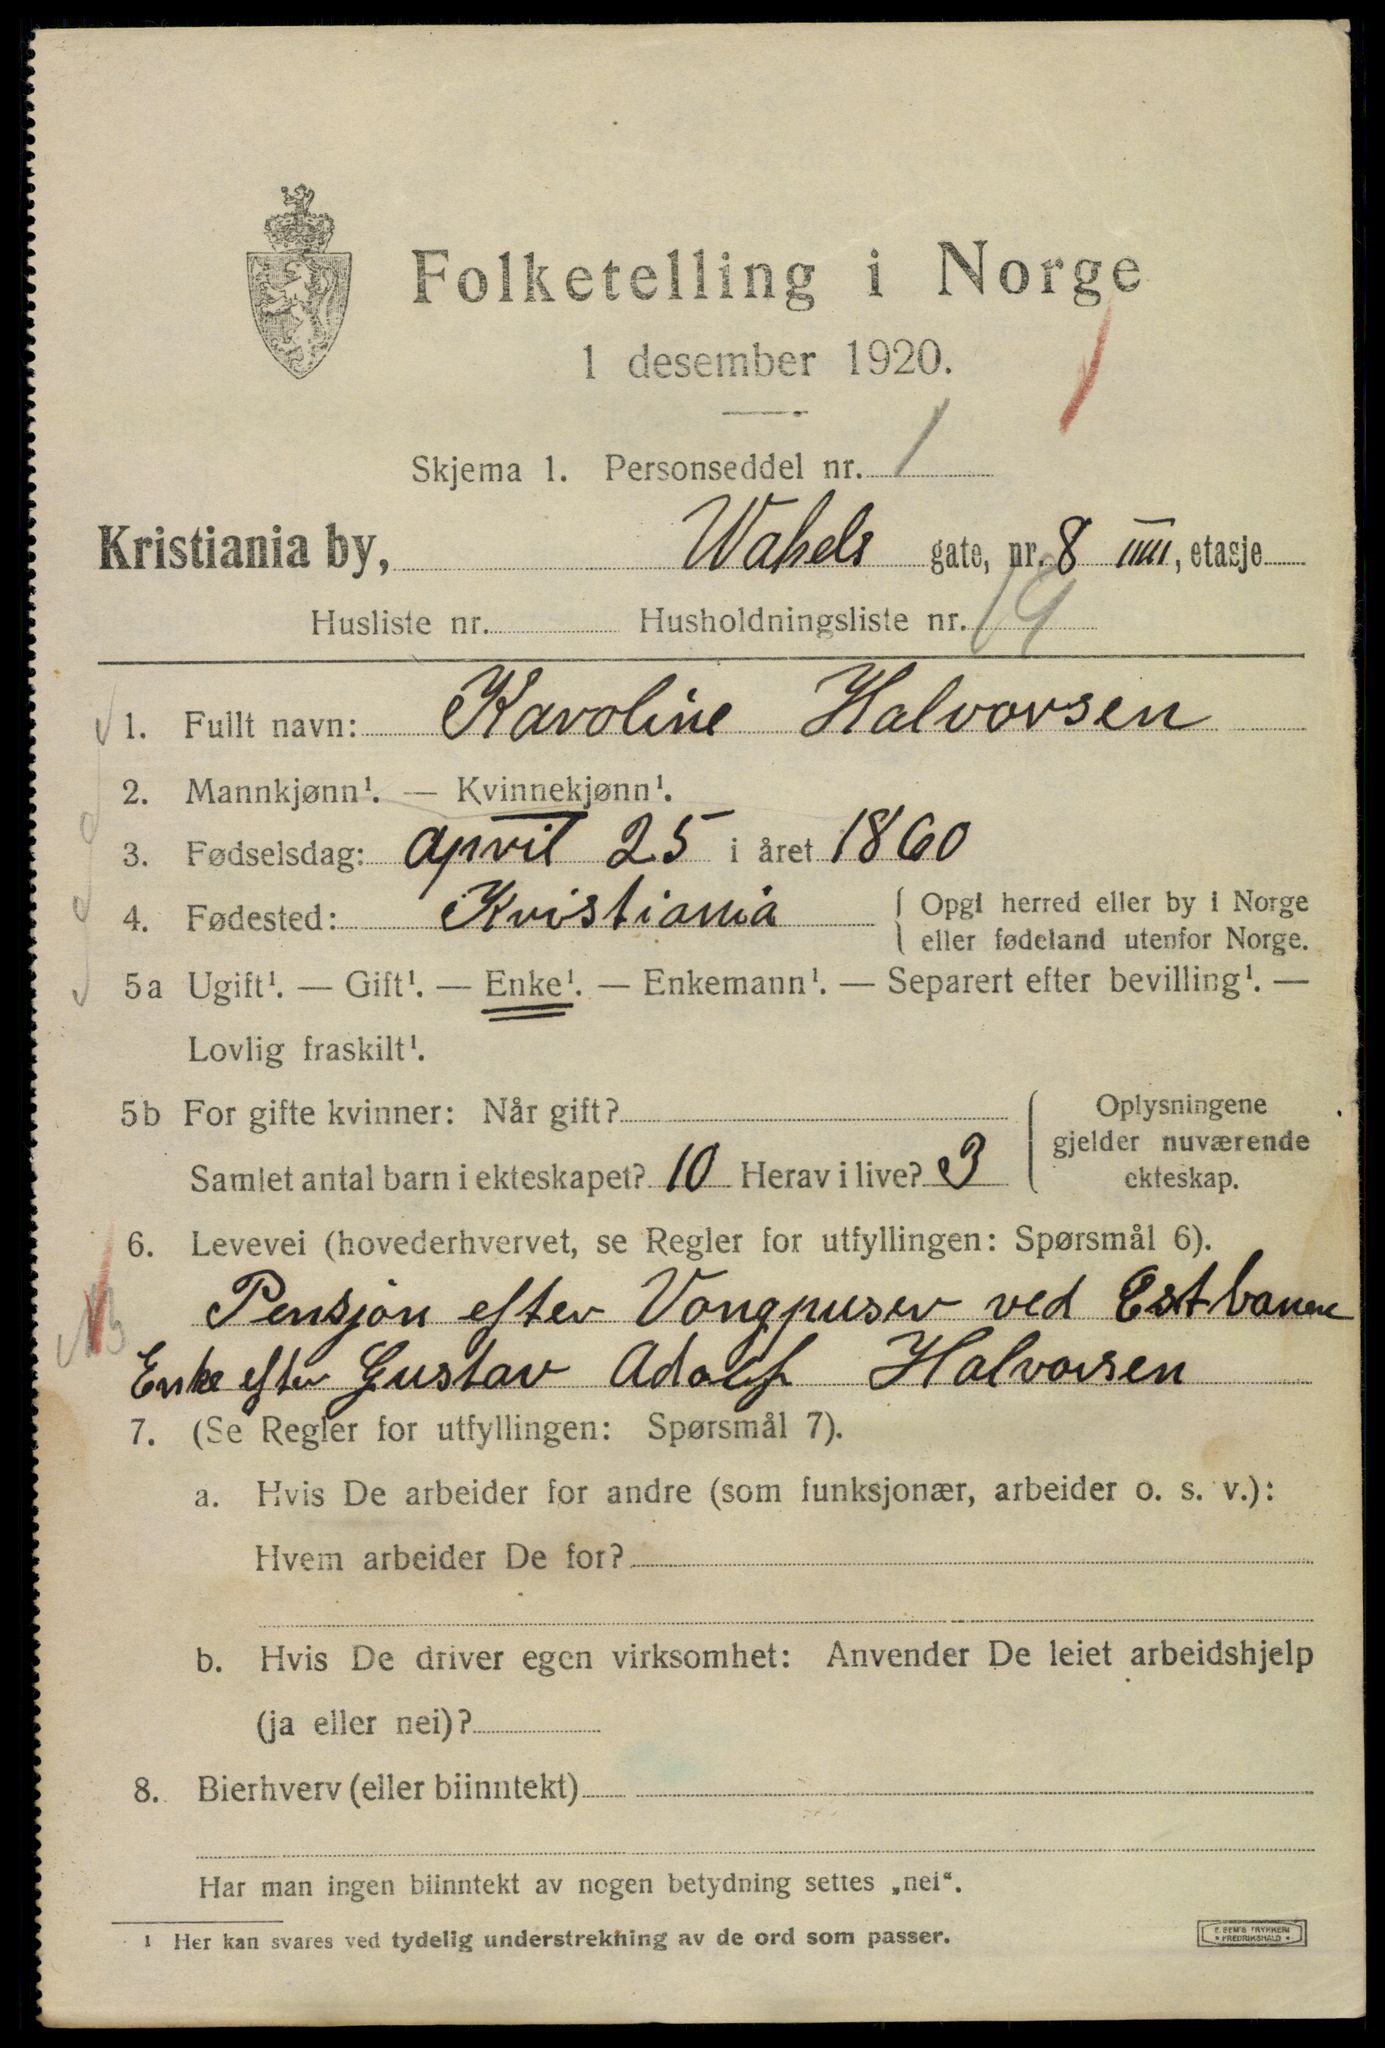 Folketelling i Norge
1 desember 1920.
Skjema 1. Personseddel nr. 1
Kristiania by, Wahels gate, nr. 8 IIII, etasje
Husliste nr. Husholdningsliste nr. 19
1. Fullt navn: Karoline Halvorsen
2. Mannkjønn¹. — Kvinnekjønn¹.
3. Fødselsdag: april 25 i året 1860
4. Fødested: Kristiania { Opgi herred eller by i Norge
eller fødeland utenfor Norge.
5a Ugift¹. — Gift¹. — Enke¹. — Enkemann¹. — Separert efter bevilling¹. —
Lovlig fraskilt¹.
5b For gifte kvinner: Når gift?
Samlet antal barn i ekteskapet? 10 Herav i live? 3
Oplysningene
gjelder nuværende
ekteskap.
6. Levevei (hovederhvervet, se Regler for utfyllingen: Spørsmål 6).
Pensjon efter Vongpuser ved Estbanene
Enke efter Gustav Adolf Halvorsen
7. (Se Regler for utfyllingen: Spørsmål 7).
a. Hvis De arbeider for andre (som funksjonær, arbeider o. s. v.):
Hvem arbeider De for?
b. Hvis De driver egen virksomhet: Anvender De leiet arbeidshjelp
(ja eller nei)?
8. Bierhverv (eller biinntekt)
Har man ingen biinntekt av nogen betydning settes „nei“.
¹ Her kan svares ved tydelig understrekning av de ord som passer.
E. SEM'S TRYKKERI
FREDRIKSHALD